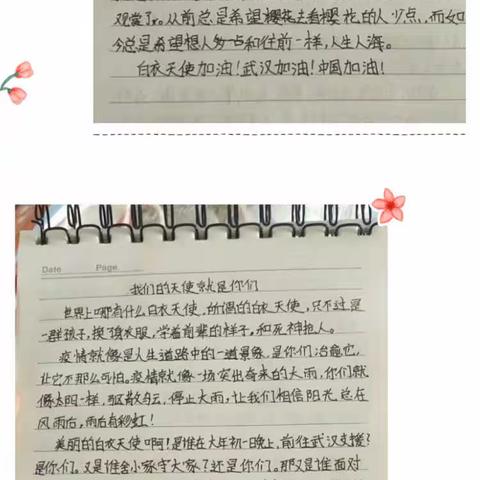 观赏了。从前总是希望樱花去看樱花的人少点，而如
今总是希望想人多一点和往前一样，人生人海。
白衣天使加油！武汉加油！中国加油！
Date Page
我们的天使就是你们
世界上哪有什么白衣天使，所谓的白衣天使，只不过是
一群孩子，换了衣服，学着前辈的样子，和死神抢人。
疫情就像是人生道路中的一道景象，是你们治愈他，
让它不那么可怕。疫情就像一场突出奇来的大雨，你们就
像太阳一样，驱散乌云，停止大雨，让我们相信阳光总在
风雨后，雨后有彩虹！
美丽的白衣天使啊！是谁在大年初一晚上，前往武汉支援？
是你们。又是谁舍小家守大家？还是你们。那又是谁面对